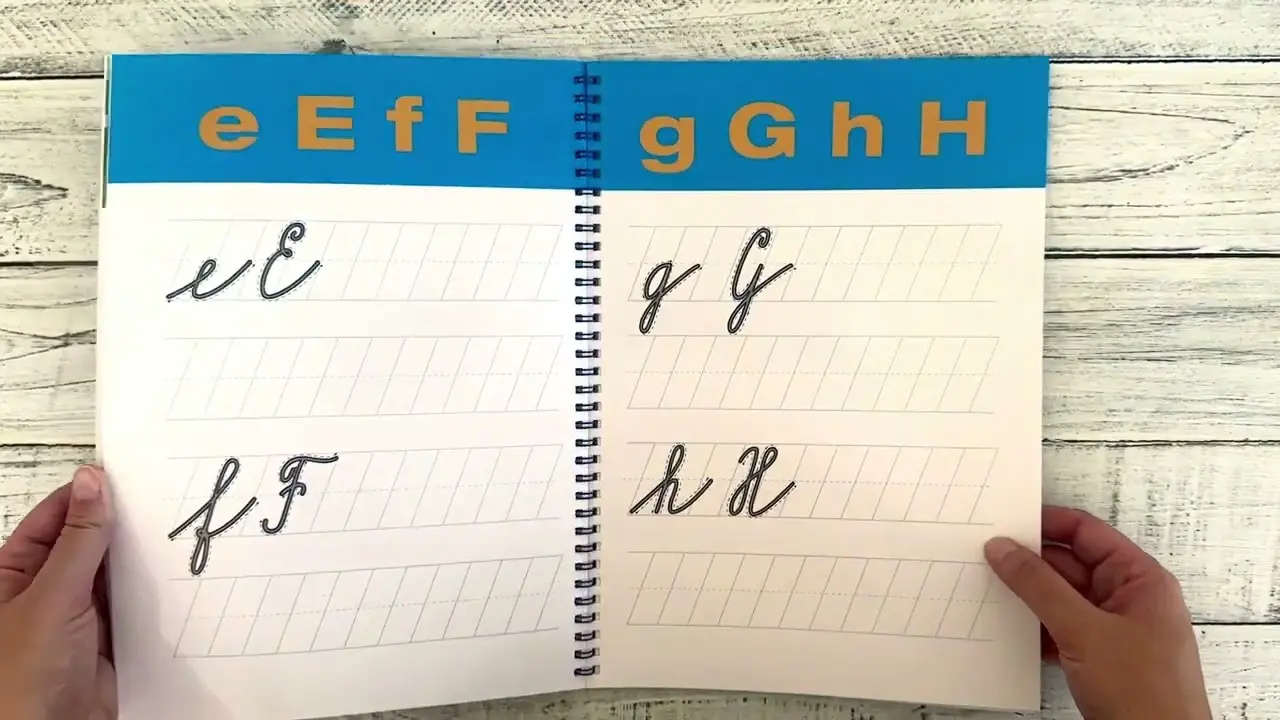 e E f F
e E
f F
g G h H
g G
h H